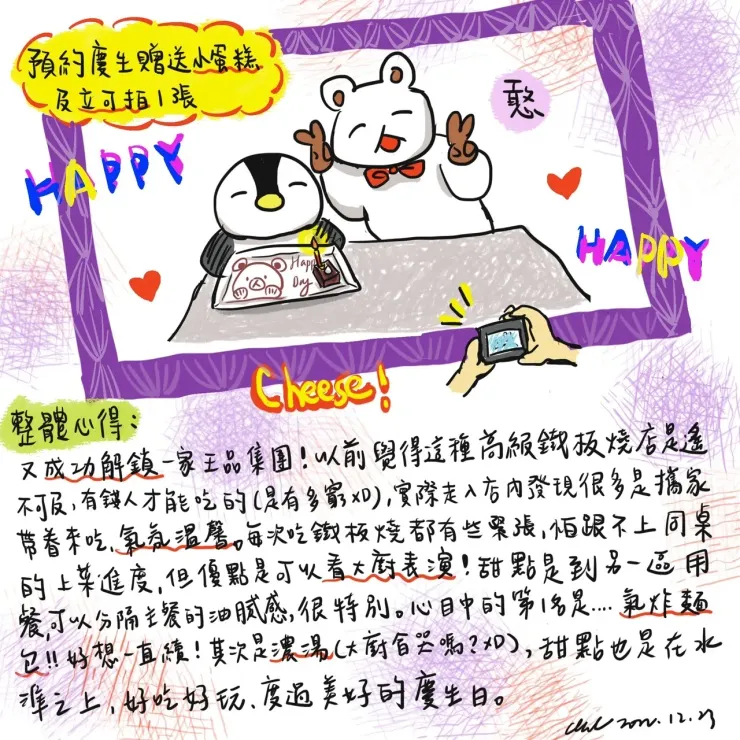 預約慶生贈送小蛋糕
及立可拍1張
憨
HAPPY
HAPPY
Happy
Day
Cheese!
整體心得:
又成功解鎖一家王品集團!以前覺得這種高級鐵板燒店是遙
不可及,有錢人才能吃的(是有多窮XD),實際走入店內發現很多是攜家
帶眷來吃、氣氛溫馨。每次吃鐵板燒都有些緊張,怕跟不上同桌
的上菜進度,但優點是可以看大廚表演!甜點是到另一區用
餐,可以分隔主餐的油膩感,很特別。心目中的第1名是....氣炸麵
包!!好想一直續!其次是濃湯(大廚會哭嗎?XD),甜點也是在水
準之上,好吃好玩、度過美好的慶生日。
12.23